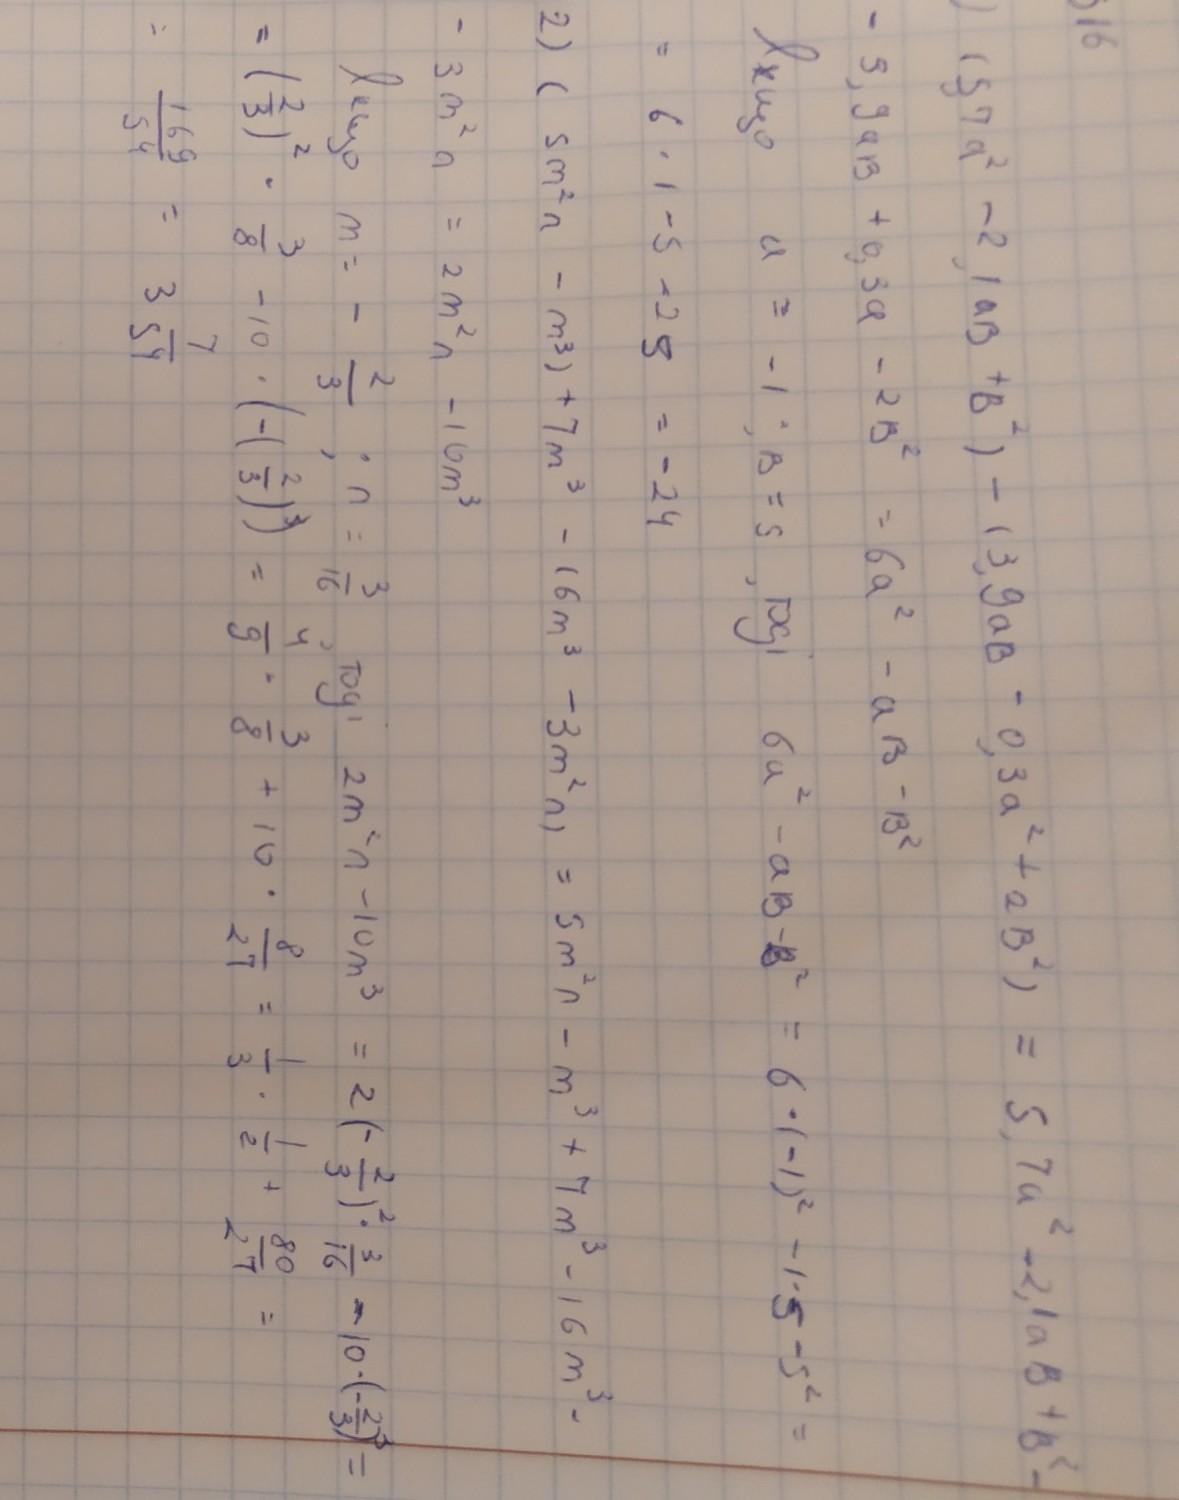 316
) (5,7a² - 2,1aв + в²) - (3,9aв - 0,3a² + 2в²) = 5,7a² - 2,1aв + в² -
- 3,9aв + 0,3a - 2в² = 6a² - aв - в²
Якщо a = -1; в = 5, тоді 6a² - aв - в² = 6 · (-1)² - 1·5 - 5² =
= 6 · 1 - 5 - 25 = -24
2) (5m²n - m³) + 7m³ - 16m³ - 3m²n) = 5m²n - m³ + 7m³ - 16m³ -
- 3m²n = 2m²n - 10m³
Якщо m = - 2/3; n = 3/16, тоді 2m²n - 10m³ = 2(-2/3)² · 3/16 - 10·(-2/3)³ =
= (2/3)² · 3/8 - 10 · (-(2/3)³) = 4/9 · 3/8 + 10 · 8/27 = 1/3 · 1/2 + 80/27 =
= 169/54 = 3 7/54